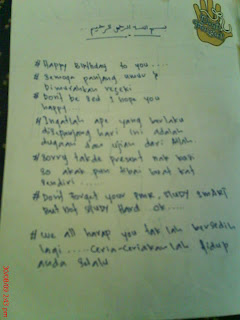 بسم الله الرحمن الرحيم
# Happy Birthday to you ....
# Semoga panjang umur &
Dimurahkan rezeki
# Don't be sad I hope you
happy...
# Ingatlah apa yang berlaku
disepanjang hari ini adalah
dugaan dan ujian dari Allah
# Sorry takde present nak bagi
So akak pun
kendiri ....
# Don't Forget your PMR, STUDY SMART
But not STUDY Hard ok....
# We all harap you tak lah bersedih
lagi .....Ceria-Ceriakan lah hidup
anda selalu